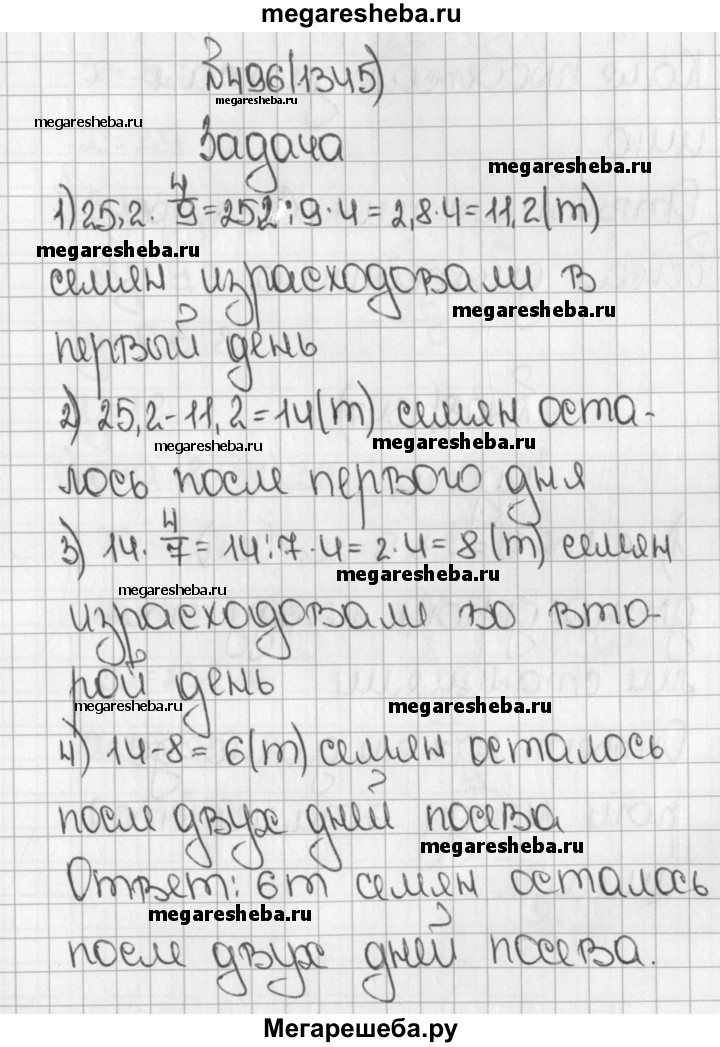 megaresheba.ru
№496(1345)
megaresheba.ru
megaresheba.ru
Задача
megaresheba.ru
1) 25,2 · 4/9 = 25,2 : 9 · 4 = 2,8 · 4 = 11,2 (т)
megaresheba.ru
семян израсходовали в
megaresheba.ru
первый день
2) 25,2 - 11,2 = 14 (т) семян оста-
megaresheba.ru
megaresheba.ru
лось после первого дня
3) 14 · 4/7 = 14 : 7 · 4 = 2 · 4 = 8 (т) семян
megaresheba.ru
megaresheba.ru
израсходовали во вто-
рой день
megaresheba.ru
megaresheba.ru
4) 14 - 8 = 6 (т) семян осталось
после двух дней посева
megaresheba.ru
Ответ: 6 т семян осталось
megaresheba.ru
после двух дней посева.
Мегарешеба.ру